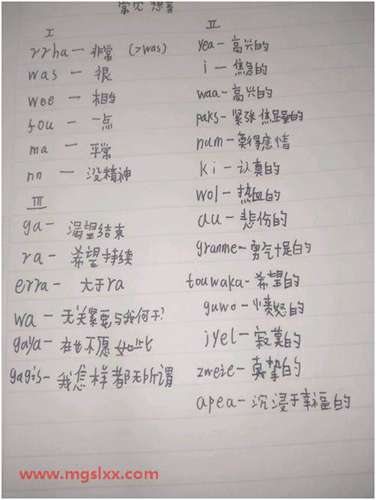 常见
I
rrha — 非常 (>was)
was — 很
wee — 相当
fou — 一点
ma — 平常
nn — 没精神
III
ga — 渴望结束
ra — 希望持续
erra — 大于ra
wa — 无关紧要与我何干?
gaya — 在也不愿如此
gagis — 我怎样都无所谓
II
yea - 高兴的
i - 焦急的
waa - 高兴的
paks - 紧张的
num - 莫得感情
ki - 认真的
wol - 热血的
au - 悲伤的
granme - 勇气十足的
touwaka - 希望的
guwo - 愤怒的
jyel - 寂寞的
zweie - 真挚的
apea - 沉浸于幸福的
www.mgslxx.com